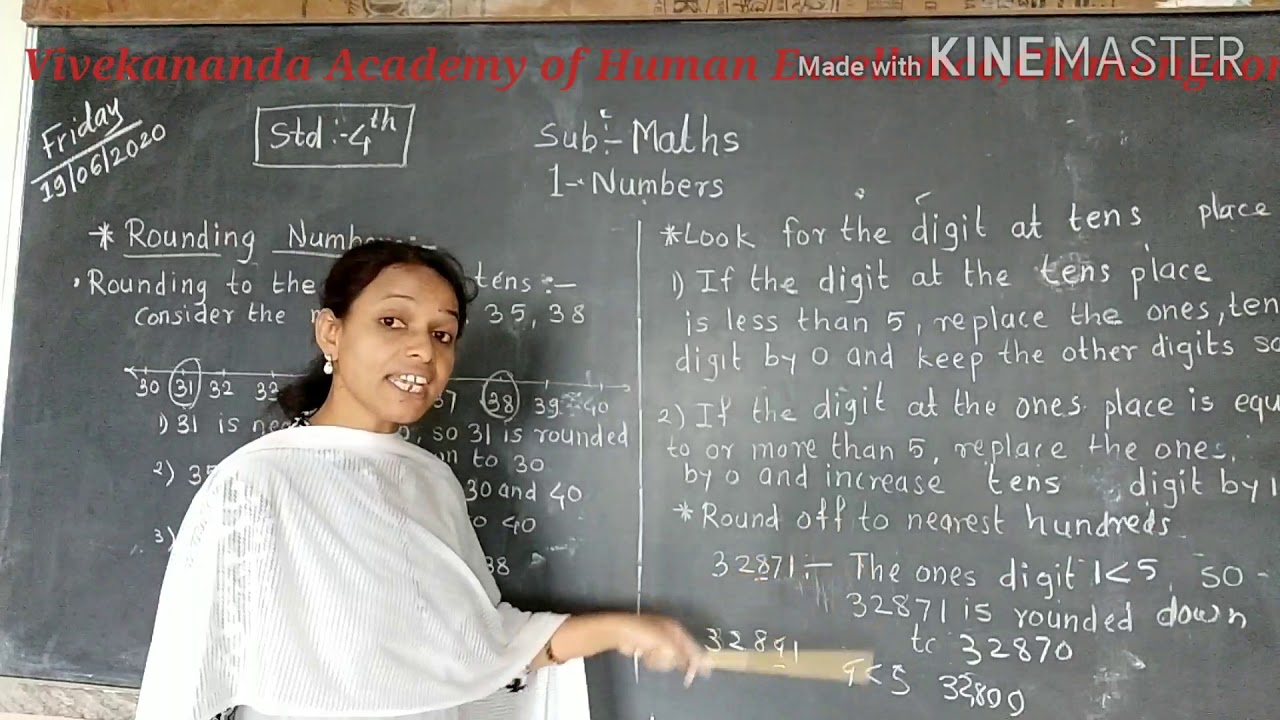 Vivekananda Academy of Human
Made with KINEMASTER
Friday
19/06/2020
Std :- 4th
Sub :- Maths
1-Numbers
* Rounding Numbers :-
Rounding to the tens :-
Consider the 35, 38
30 31 32 33 37 38 39 40
1) 31 is so 31 is rounded
to 30
2) 35
30 and 40
40
3)
38
*Look for the digit at tens place
1) If the digit at the tens place
is less than 5, replace the ones, ten
digit by 0 and keep the other digits
2) If the digit at the ones place is
to or more than 5, replace the ones,
by 0 and increase tens digit by 1
* Round off to nearest hundreds
32871 :- The ones digit 1<5, so -
32871 is rounded down
to 32870
<5